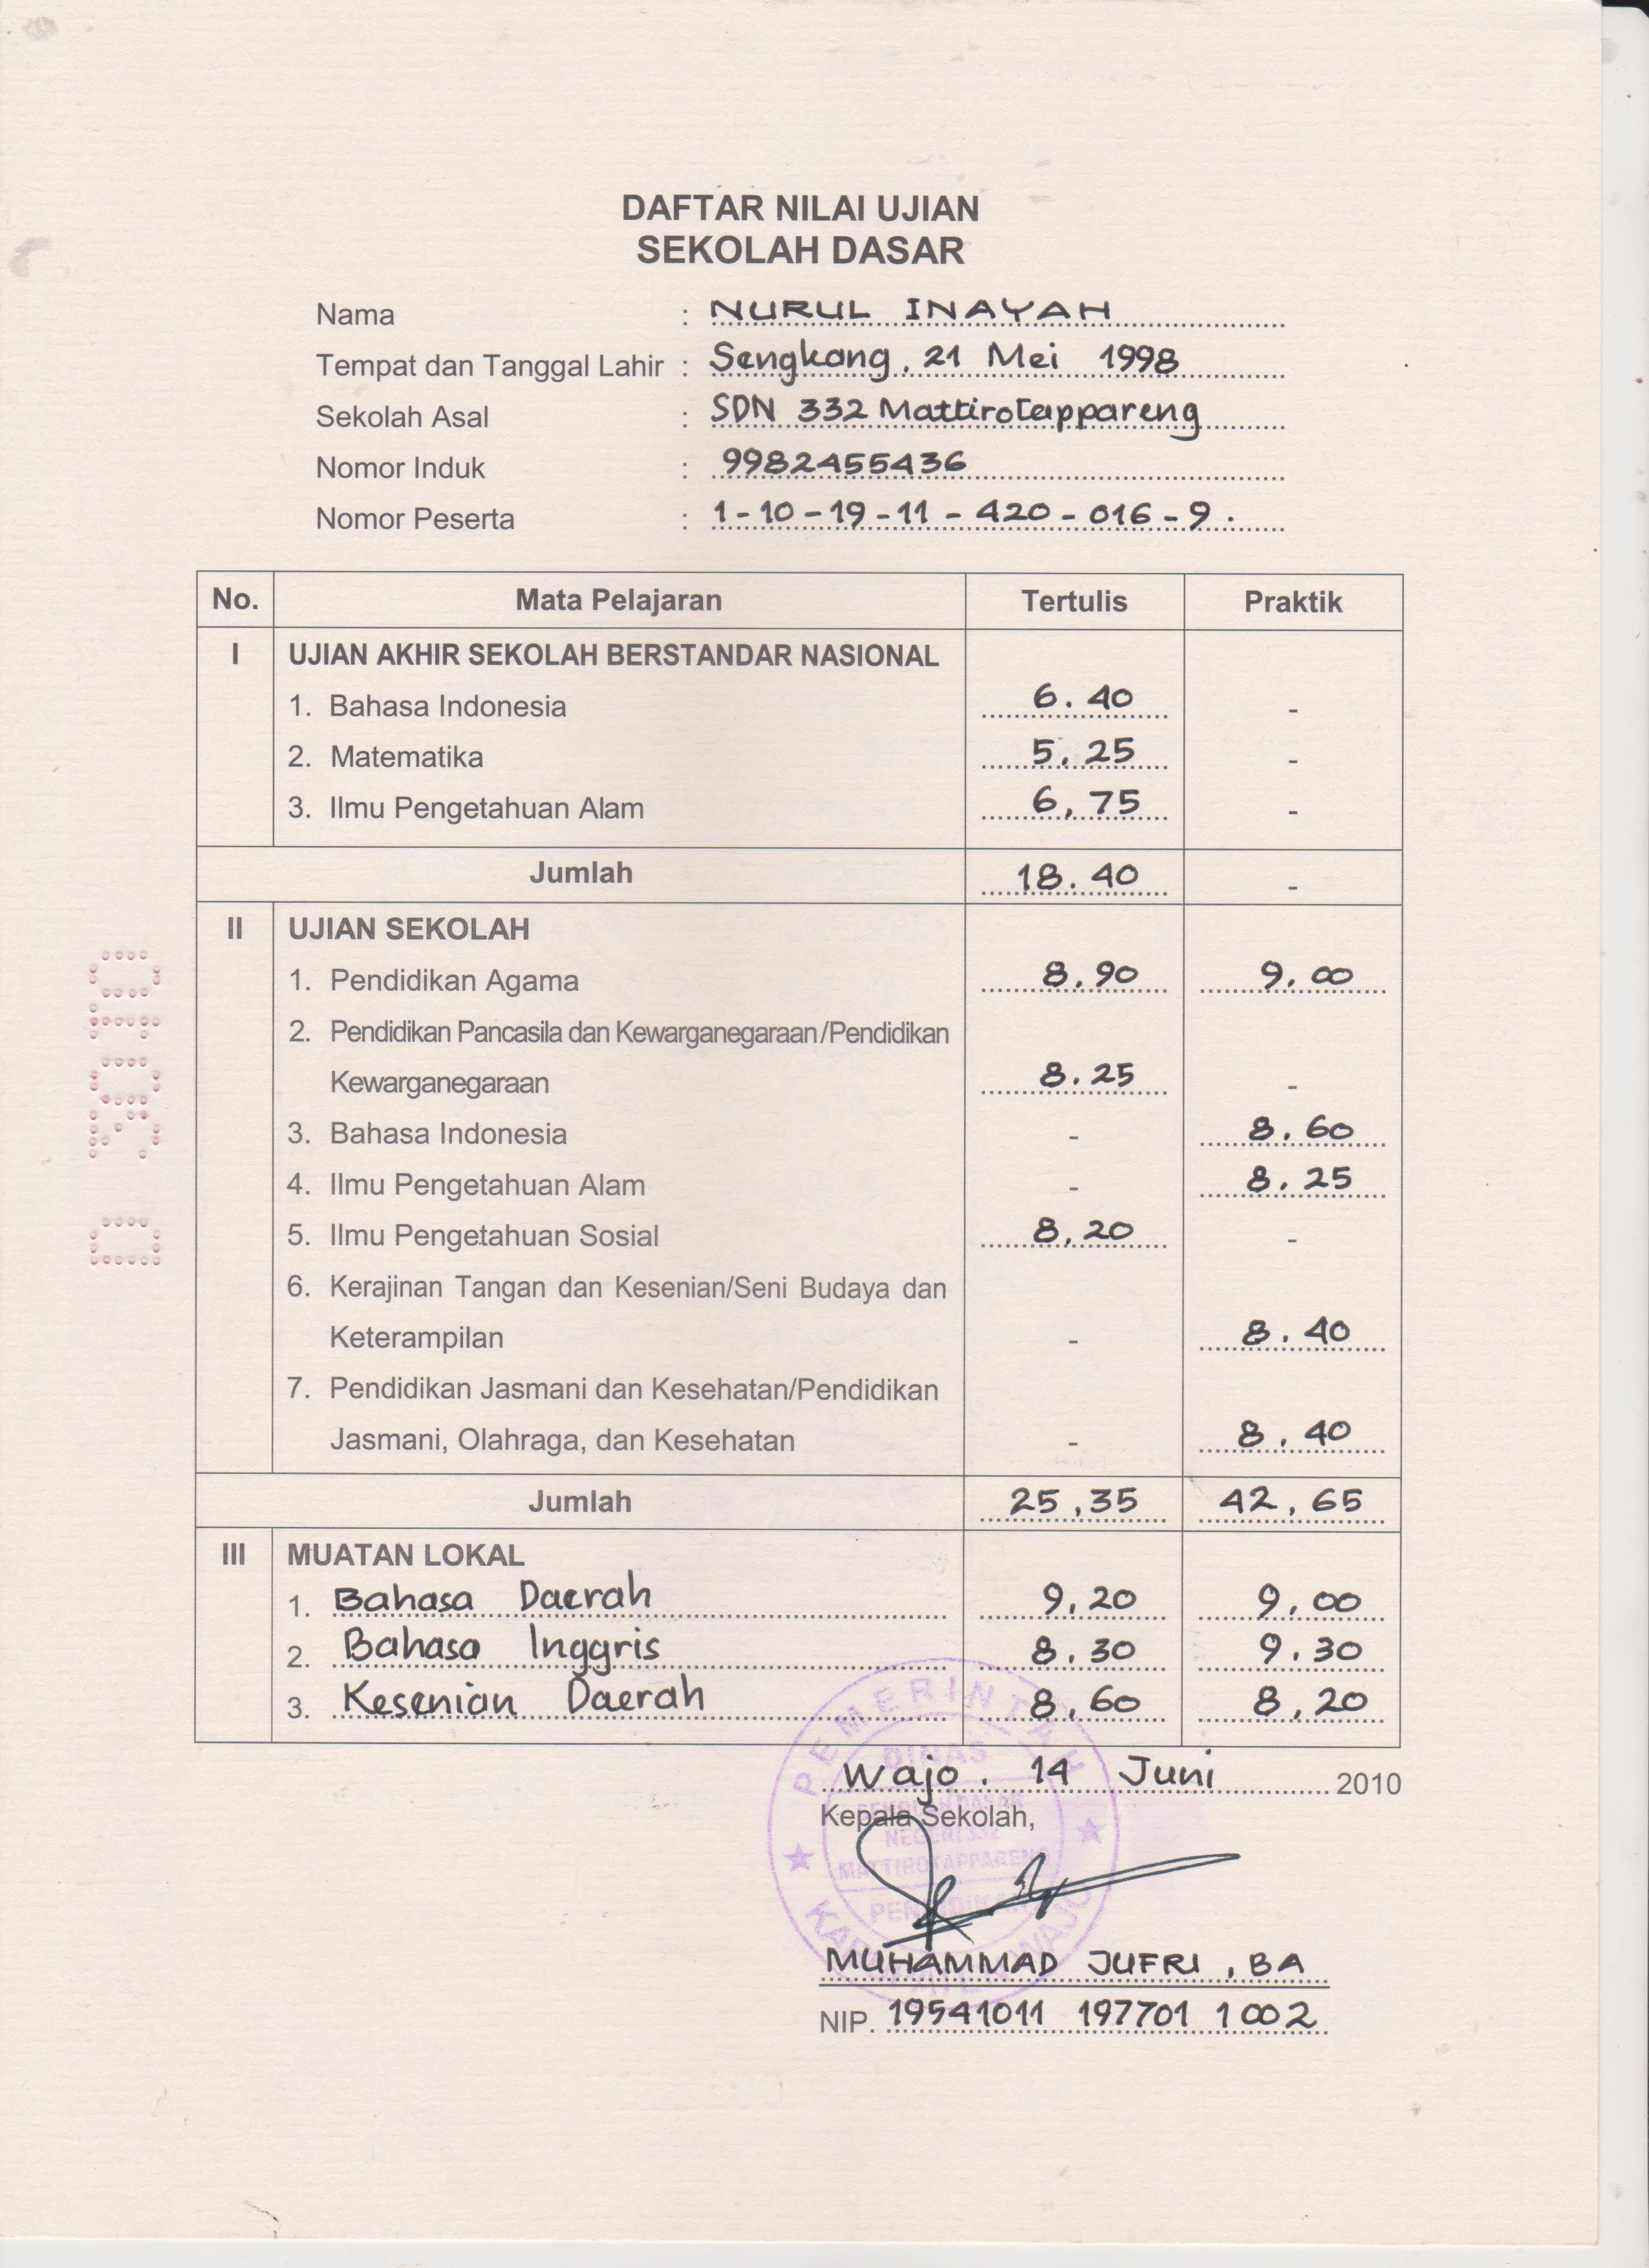 DAFTAR NILAI UJIAN
SEKOLAH DASAR
Nama : NURUL INAYAH
Tempat dan Tanggal Lahir : Sengkang, 21 Mei 1998
Sekolah Asal : SDN 332 Mattirotappareng
Nomor Induk : 9982455436
Nomor Peserta : 1-10-19-11-420-016-9.
No. Mata Pelajaran Tertulis Praktik
I UJIAN AKHIR SEKOLAH BERSTANDAR NASIONAL
1. Bahasa Indonesia 6.40 -
2. Matematika 5,25 -
3. Ilmu Pengetahuan Alam 6,75 -
Jumlah 18.40 -
II UJIAN SEKOLAH
1. Pendidikan Agama 8,90 9,00
2. Pendidikan Pancasila dan Kewarganegaraan/Pendidikan
Kewarganegaraan 8,25 -
3. Bahasa Indonesia - 8,60
4. Ilmu Pengetahuan Alam - 8,25
5. Ilmu Pengetahuan Sosial 8,20 -
6. Kerajinan Tangan dan Kesenian/Seni Budaya dan
Keterampilan - 8,40
7. Pendidikan Jasmani dan Kesehatan/Pendidikan
Jasmani, Olahraga, dan Kesehatan - 8,40
Jumlah 25,35 42,65
III MUATAN LOKAL
1. Bahasa Daerah 9,20 9,00
2. Bahasa Inggris 8,30 9,30
3. Kesenian Daerah 8,60 8,20
Wajo. 14 Juni 2010
Kepala Sekolah,
PEMERINTAH
DINAS
SEKOLAH DASAR
NEGERI 332
MATTIROTAPPARENG
PENDIDIKAN
MUHAMMAD JUFRI, BA
NIP. 19541011 197701 1 002